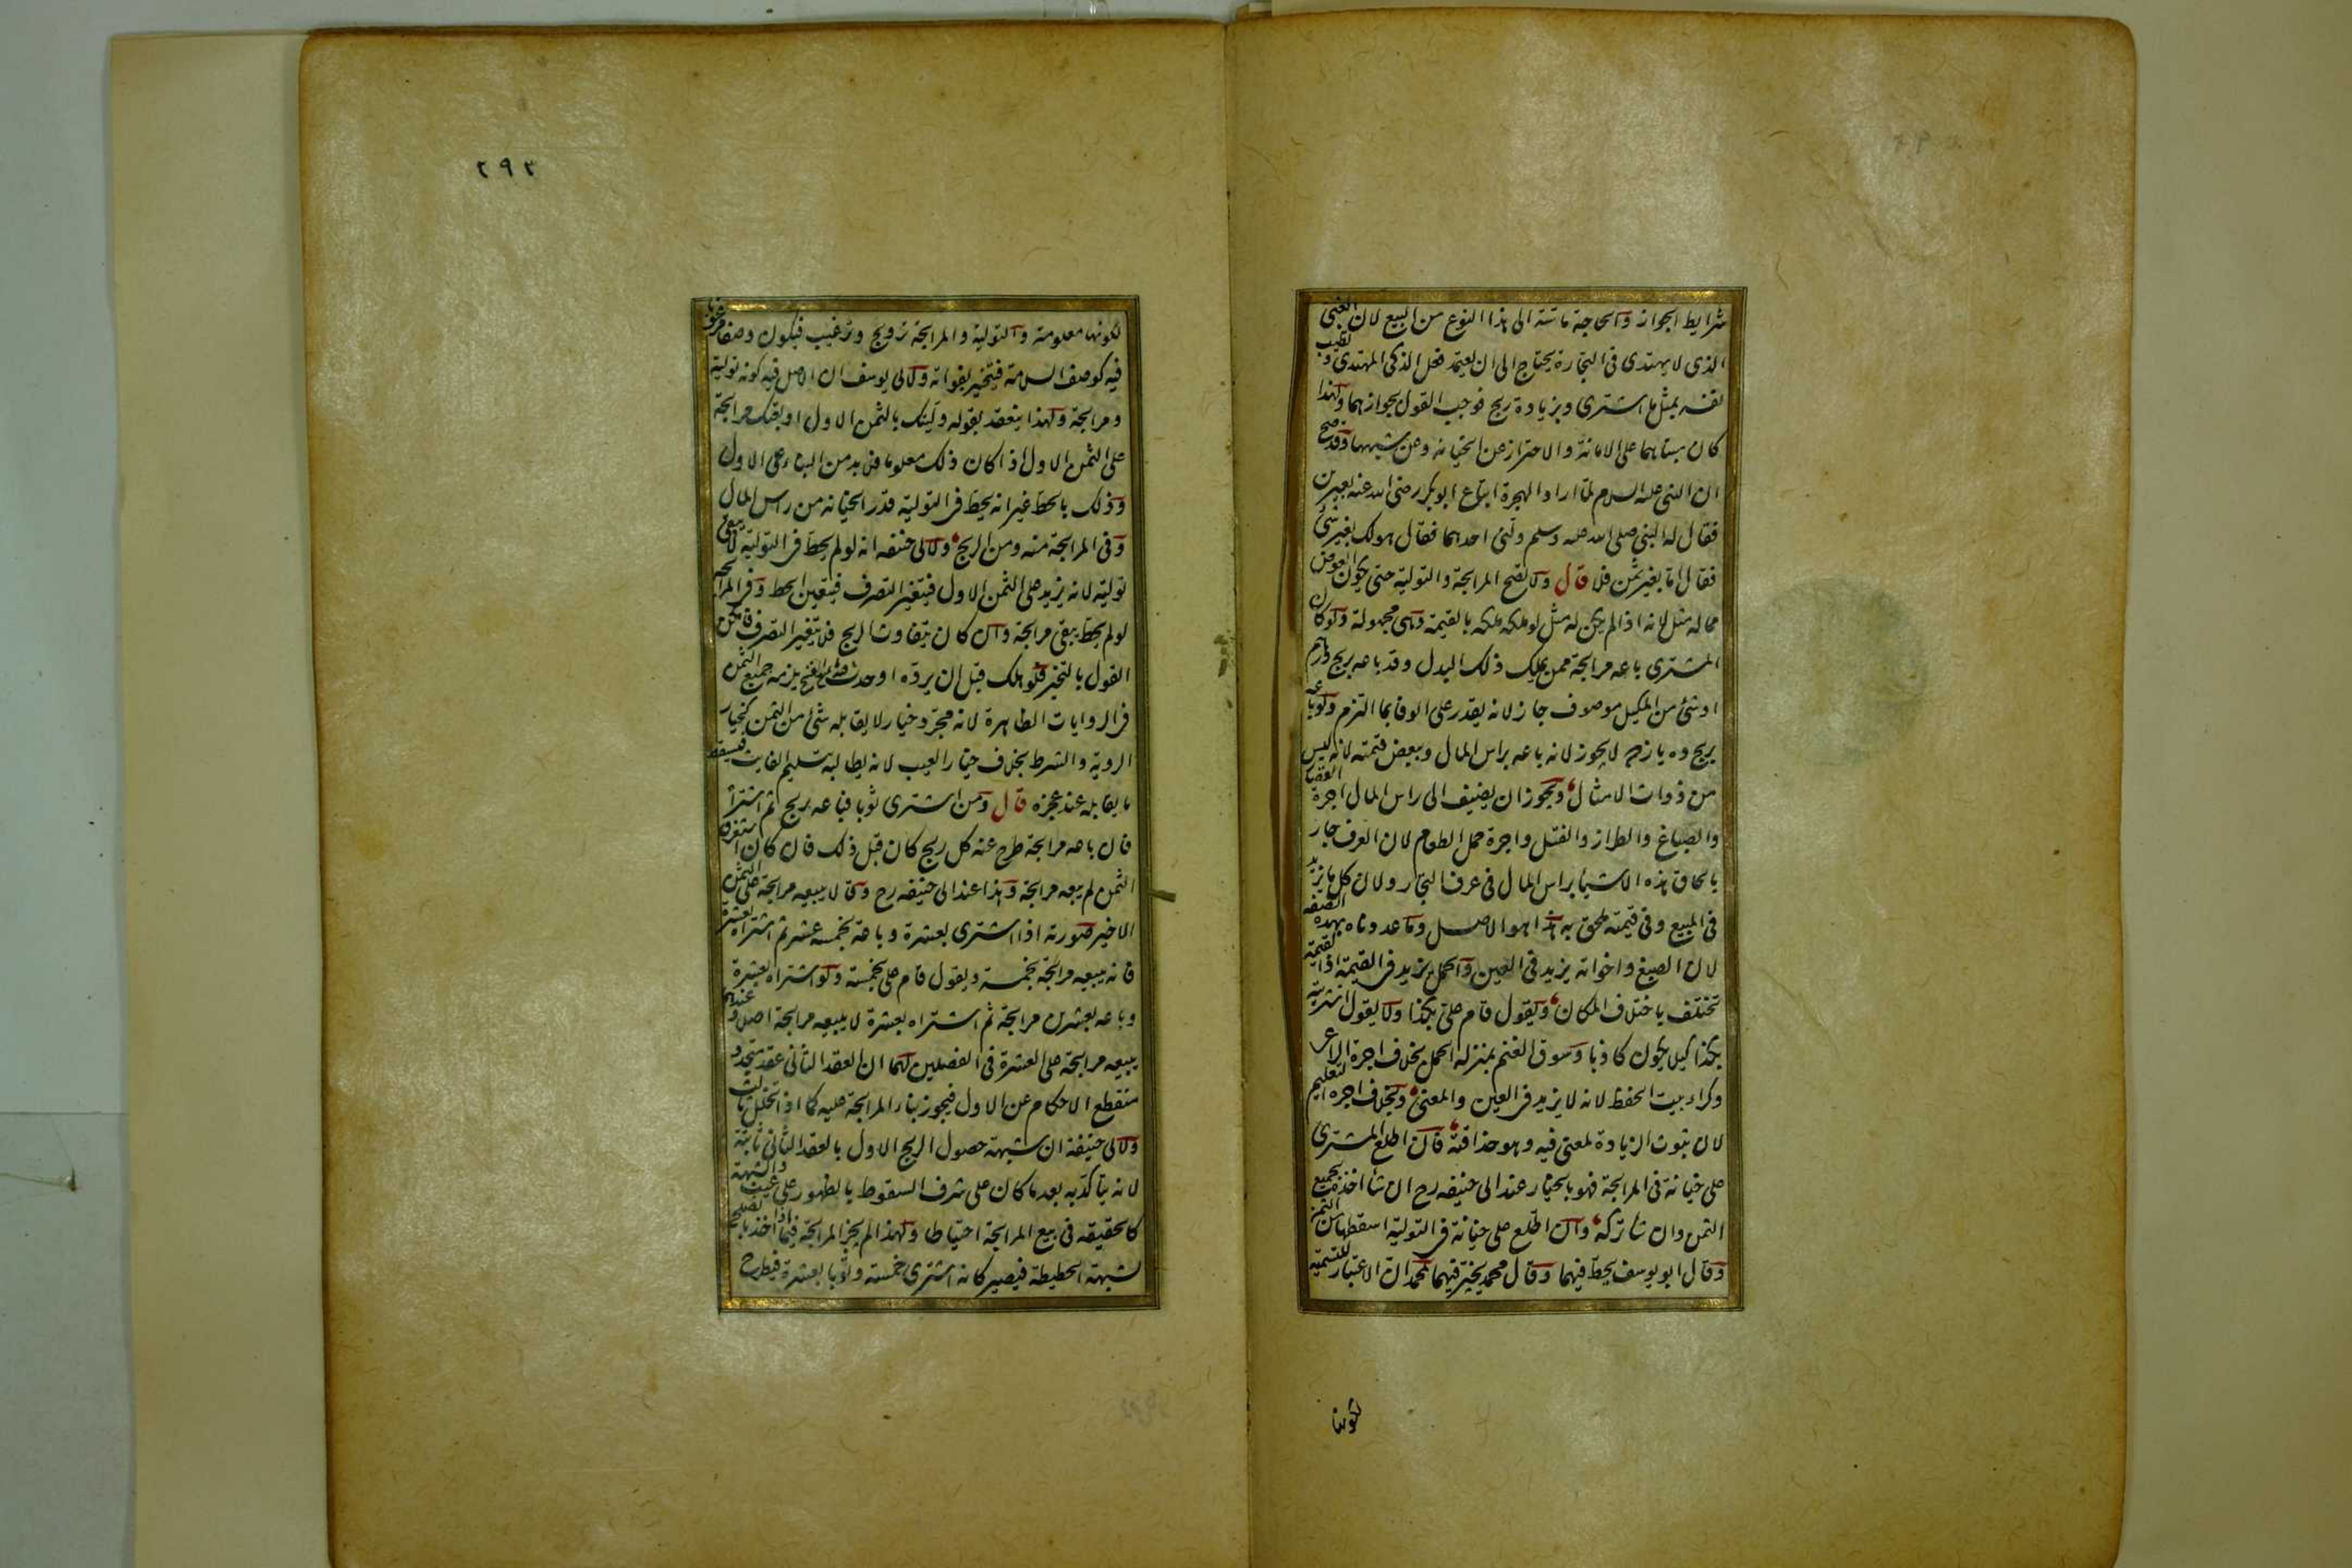 شرايط الجواز والحاجة ماسة الى هذا النوع من البيع لان الغبى
الذى لا يهتدى فى التجارة يحتاج الى ان يعتمد فعل الذكى المهتدى وتطيب
نفسه بمثل ما اشترى وبزيادة ربح فوجب القول بجوازهما ولهذا
كان مبناهما على الامانة والاحتراز عن الخيانة وعن شبهها وقد صح
ان النبى عليه السلام لما اراد الهجرة ابتاع ابو بكر رضى الله عنه بعيرين
فقال له النبى صلى الله عليه وسلم ولنى احدهما فقال هو لك بغير شئ
فقال اما بغير ثمن فلا قال ولا تصح المرابحة والتولية حتى يكون العوض
مما له مثل لانه اذا لم يكن له مثل لو ملكه ملكه بالقيمة وهى مجهولة ولو كان
المشترى باعه مرابحة ممن يملك ذلك البدل وقد باعه بربح درهم
او شئ من المكيل موصوف جاز لانه يقدر على الوفا بما التزم ولو باعه
بربح ده يازده لا يجوز لانه باعه براس المال وببعض قيمته لانه ليس
من ذوات الامثال ويجوز ان يضيف الى راس المال اجرة القصار
والصباغ والطراز والفتل واجرة حمل الطعام لان العرف جار
بالحاق هذه الاشيأ براس المال فى عرف التجار ولان كل ما يزيد
فى المبيع وفى قيمته يلحق به هذا هو الاصل وما عددناه بهذه الصفه
لان الصبغ واخواته يزيد فى العين والحمل يزيد فى القيمة اذ القيمة
تختلف باختلاف المكان ويقول قام على بكذا ولا يقول اشتريته
بكذا كيلا يكون كاذبا وسوق الغنم بمنزله الحمل بخلاف اجرة الراعى
وكراء بيت الحفظ لانه لا يزيد فى العين والمعنى وبخلاف اجره التعليم
لان ثبوت الزيادة لمعنى فيه وهو حذاقته فان اطلع المشترى
على خيانة فى المرابحة فهو بالخيار عند ابى حنيفه رح ان شا اخذه بجميع
الثمن وان شا تركه وان اطلع على خيانة فى التولية اسقطها من الثمن
وقال ابو يوسف يحط فيهما وقال محمد يخير فيهما لمحمد ان الاعتبار للتسمية
لكونها
٢٩٣
لكونها معلومة والتولية والمرابحة ترويج وترغيب فيكون وصفا مرغوبا
فيه كوصف السلامة فيتخير بفواته ولابى يوسف ان الاصل فيه كونه تولية
ومرابحة ولهذا ينعقد بقوله وليتك بالثمن الاول او بعتك مرابحة
على الثمن الاول اذا كان ذلك معلوما فلا بد من البناء على الاول
وذلك بالحط غير انه يحط فى التولية قدر الخيانه من راس المال
وفى المرابحة منه ومن الربح ولابى حنيفه انه لو لم يحط فى التولية لا يبقى
تولية لانه يزيد على الثمن الاول فيتغير التصرف فيتعين الحط وفى المرابحه
لو لم يحط يبقى مرابحة وان كان يتفاوت الربح فلا يتغير التصرف فامكن
القول بالتخير فلو هلك قبل ان يرده او حدث فيه ما يمنع الفسخ يلزمه جميع الثمن
فى الروايات الظاهرة لانه مجرد خيار لا يقابله شئ من الثمن كخيار
الروية والشرط بخلاف خيار العيب لانه يطالبه بتسليم الفايت فيسقط
ما يقابله عند عجزه قال ومن اشترى ثوبا فباعه بربح ثم اشتراه
فان باعه مرابحة طرح عنه كل ربح كان قبل ذلك فان كان استغرق
الثمن لم يبعه مرابحة وهذا عند ابى حنيفه رح وقالا يبيعه مرابحة على الثمن
الاخير صورته اذا اشترى بعشرة وباعه بخمسه عشر ثم اشتراه بعشرة
فانه يبيعه مرابحة بخمسة ويقول قام على بخمسة ولو اشتراه بعشرة
وباعه بعشرين مرابحة ثم اشتراه بعشرة لا يبيعه مرابحة اصلا وعندهما
يبيعه مرابحة على العشرة فى الفصلين لهما ان العقد الثانى عقد متجدد
منقطع الاحكام عن الاول فيجوز بناء المرابحة عليه كما اذا تخلل ثالث
ولابى حنيفة ان شبهة حصول الربح الاول بالعقد الثانى ثابتة
لانه يتاكد به بعد ما كان على شرف السقوط بالظهور على عيب والشبهة
كالحقيقه فى بيع المرابحة احتياطا ولهذا لم يجز المرابحة فيما اخذ بالصلح
لشبهة الحطيطة فيصير كانه اشترى خمسة وثوبا بعشرة فيطرح